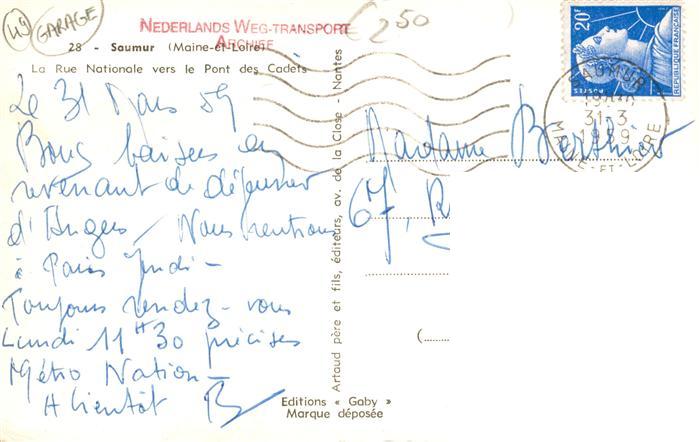 49
GARAGE
NEDERLANDS WEG-TRANSPORT
ARCHIEF
€ 2,50
28 - Saumur (Maine-et-Loire)
La Rue Nationale vers le Pont des Cadets
Le 31 Mars 59
Bons baisers en
revenant de déjeuner
d'Angers - Nous rentrons
à Paris Jeudi -
Toujours rendez-vous
Lundi 11H30 précises
Métro Nation -
A bientôt B
Artaud père et fils, éditeurs, av. de la Close - Nantes
Editions « Gaby »
Marque déposée
20F
POSTES
REPUBLIQUE FRANÇAISE
SAUMUR
31-3
1959
MAINE-ET-LOIRE
Madame
67, R
(........